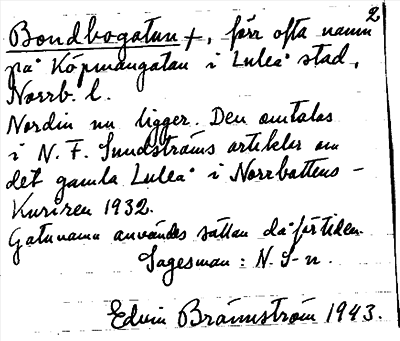 2
Bondbogatan +, förr ofta namn
på Köpmangatan i Luleå stad,
Norrb. l.
Nordin nu ligger. Den omtalas
i N. F. Sundströms artiklar om
det gamla Luleå i Norrbottens-
Kuriren 1932.
Gatunamn användes sällan då förtiden.
Sagesman: N. S-n.
Edvin Brännström 1943.